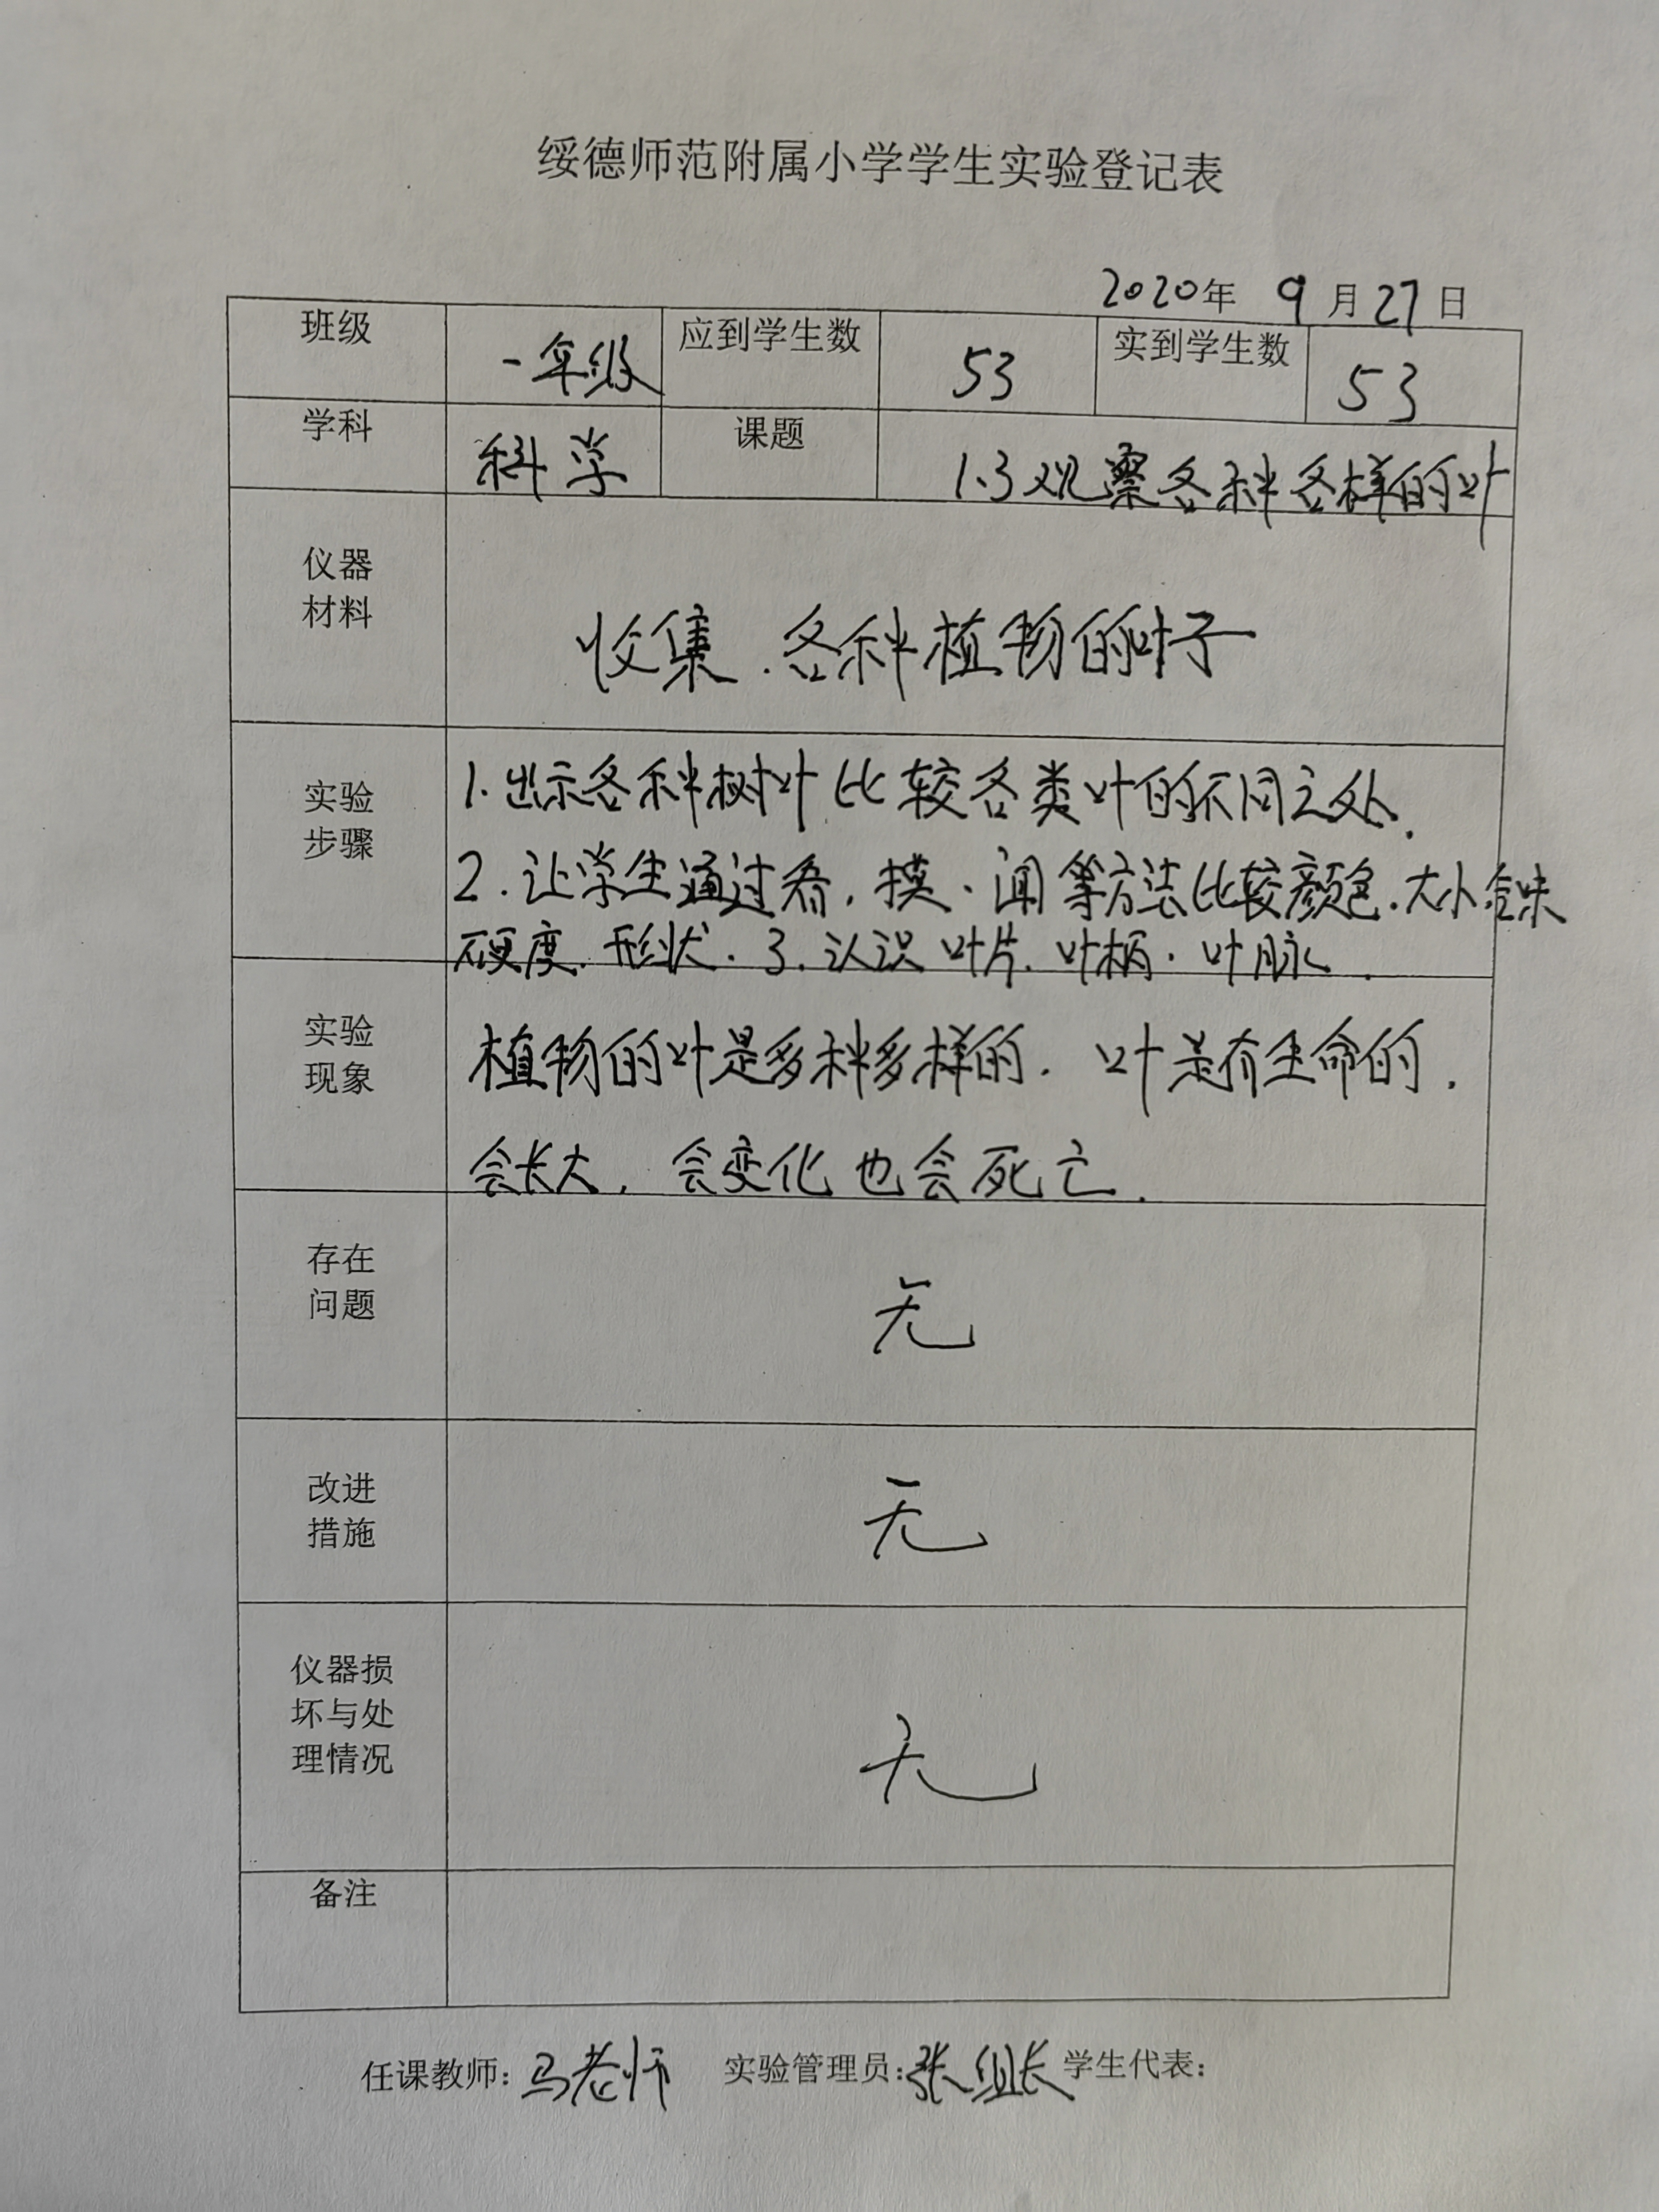 绥德师范附属小学学生实验登记表
2020年 9月27日
班级 一年级 应到学生数 53 实到学生数 53
学科 科学 课题 1.3观察各种各样的叶
仪器
材料
收集.各种植物的叶子
实验
步骤
1.出示各种树叶比较各类叶的不同之处.
2.让学生通过看,摸、闻等方法比较颜色.大小
硬度.形状.3.认识叶片.叶柄.叶脉.
实验
现象
植物的叶是多种多样的.叶是有生命的.
会长大,会变化也会死亡.
存在
问题
无
改进
措施
无
仪器损
坏与处
理情况
无
备注
任课教师:马老师 实验管理员:张组长 学生代表: